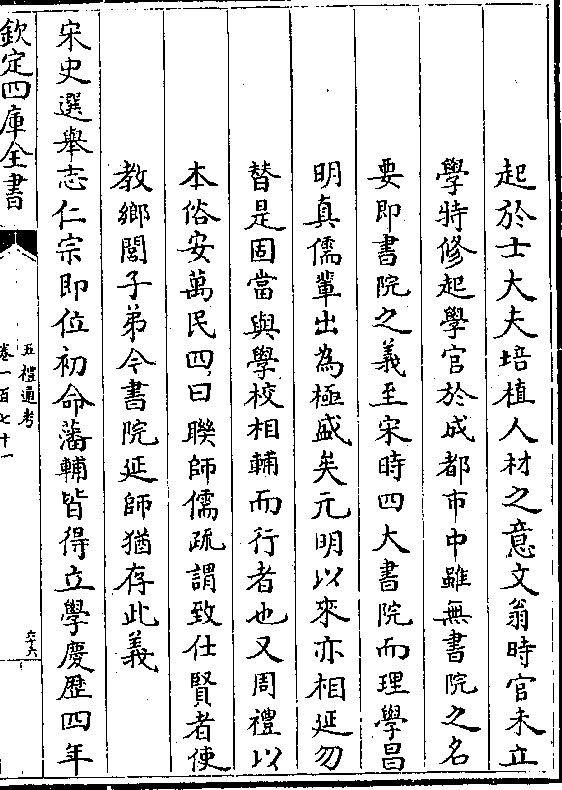 起於士大夫培植人材之意文翁時官未立
學特修起學官於成都市中雖無書院之名
要即書院之義至宋時四大書院而理學昌
明真儒輩出為極盛矣元明以來亦相延勿
替是固當與學校相輔而行者也又周禮以
本俗安萬民四曰聯師儒疏謂致仕賢者使
教鄉閭子弟今書院延師猶存此義
宋史選舉志仁宗即位初命藩輔皆得立學慶歷四年
欽定四庫全書
五禮通考
卷一百七十一
六六